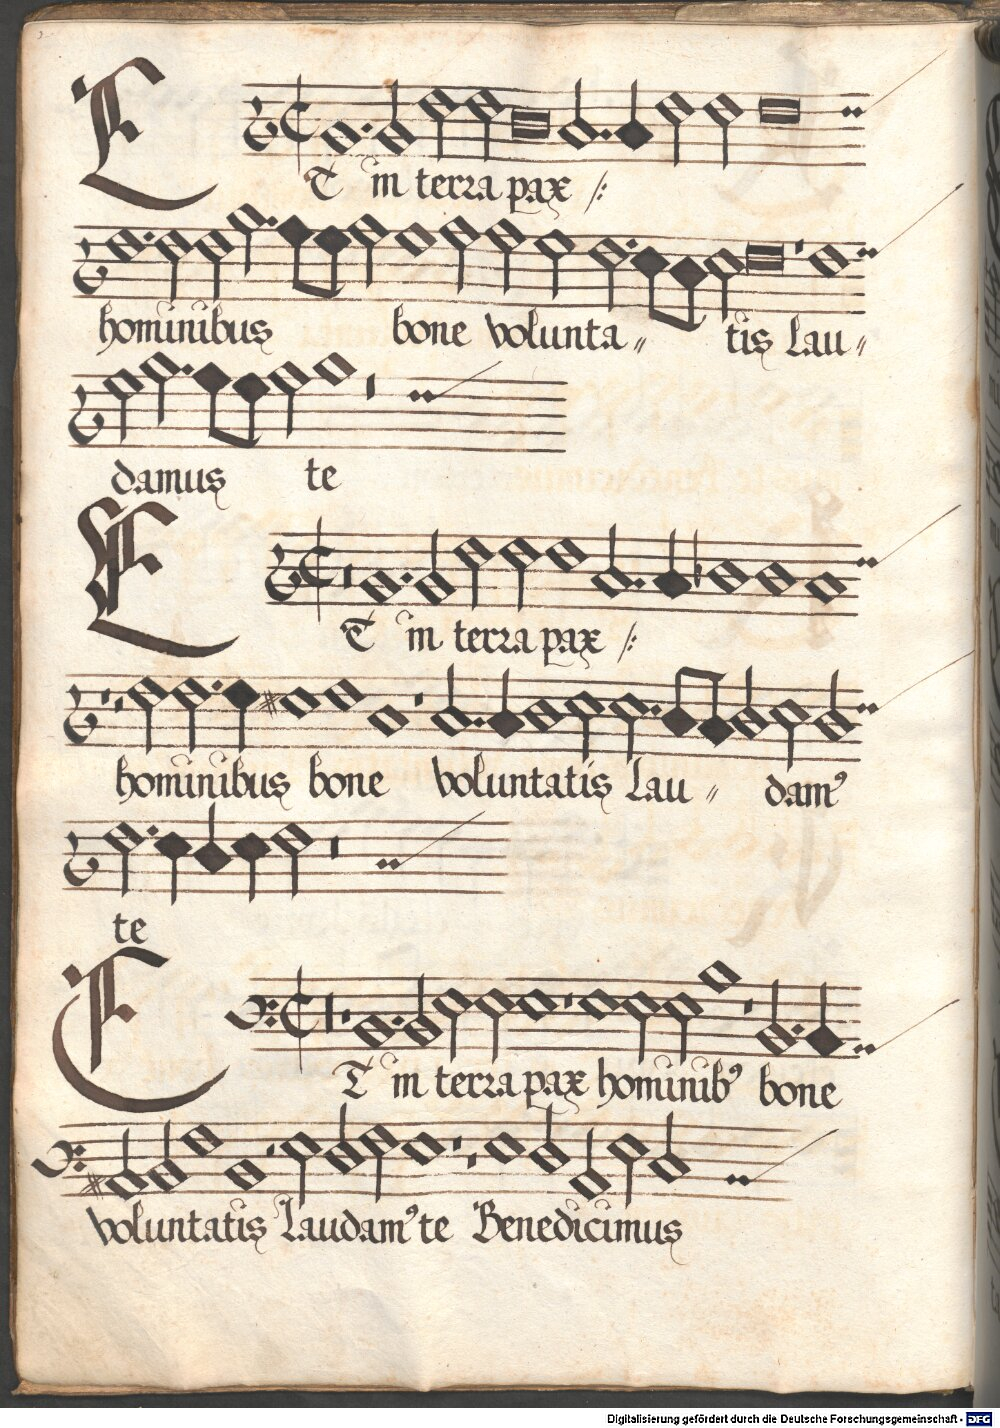 ET in terra pax /:
hominibus bone volunta〃 tis Lau〃
damus te
ET in terra pax /:
hominibus bone voluntatis Lau 〃 damꝰ
te
ET in terra pax hominibꝰ bone
voluntatis Laudamꝰ te Benedicimus
Digitalisierung gefördert durch die Deutsche Forschungsgemeinschaft - DFG